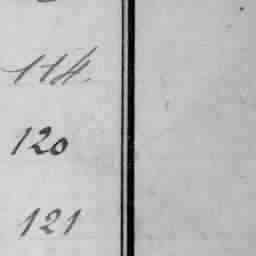 114.
120
121